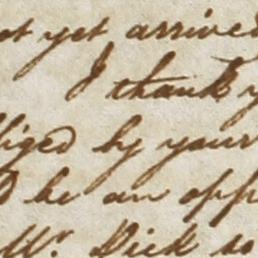 ot yet arrived
I thank y
liged by your
d be an opp
Mr. Dick so